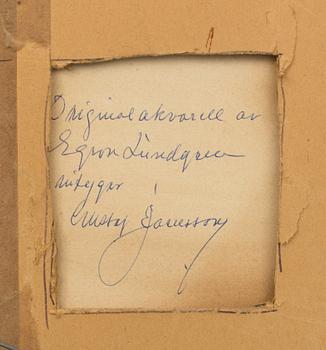 Originalakvarell av
Egron Lundgren
intygar
Jonesson